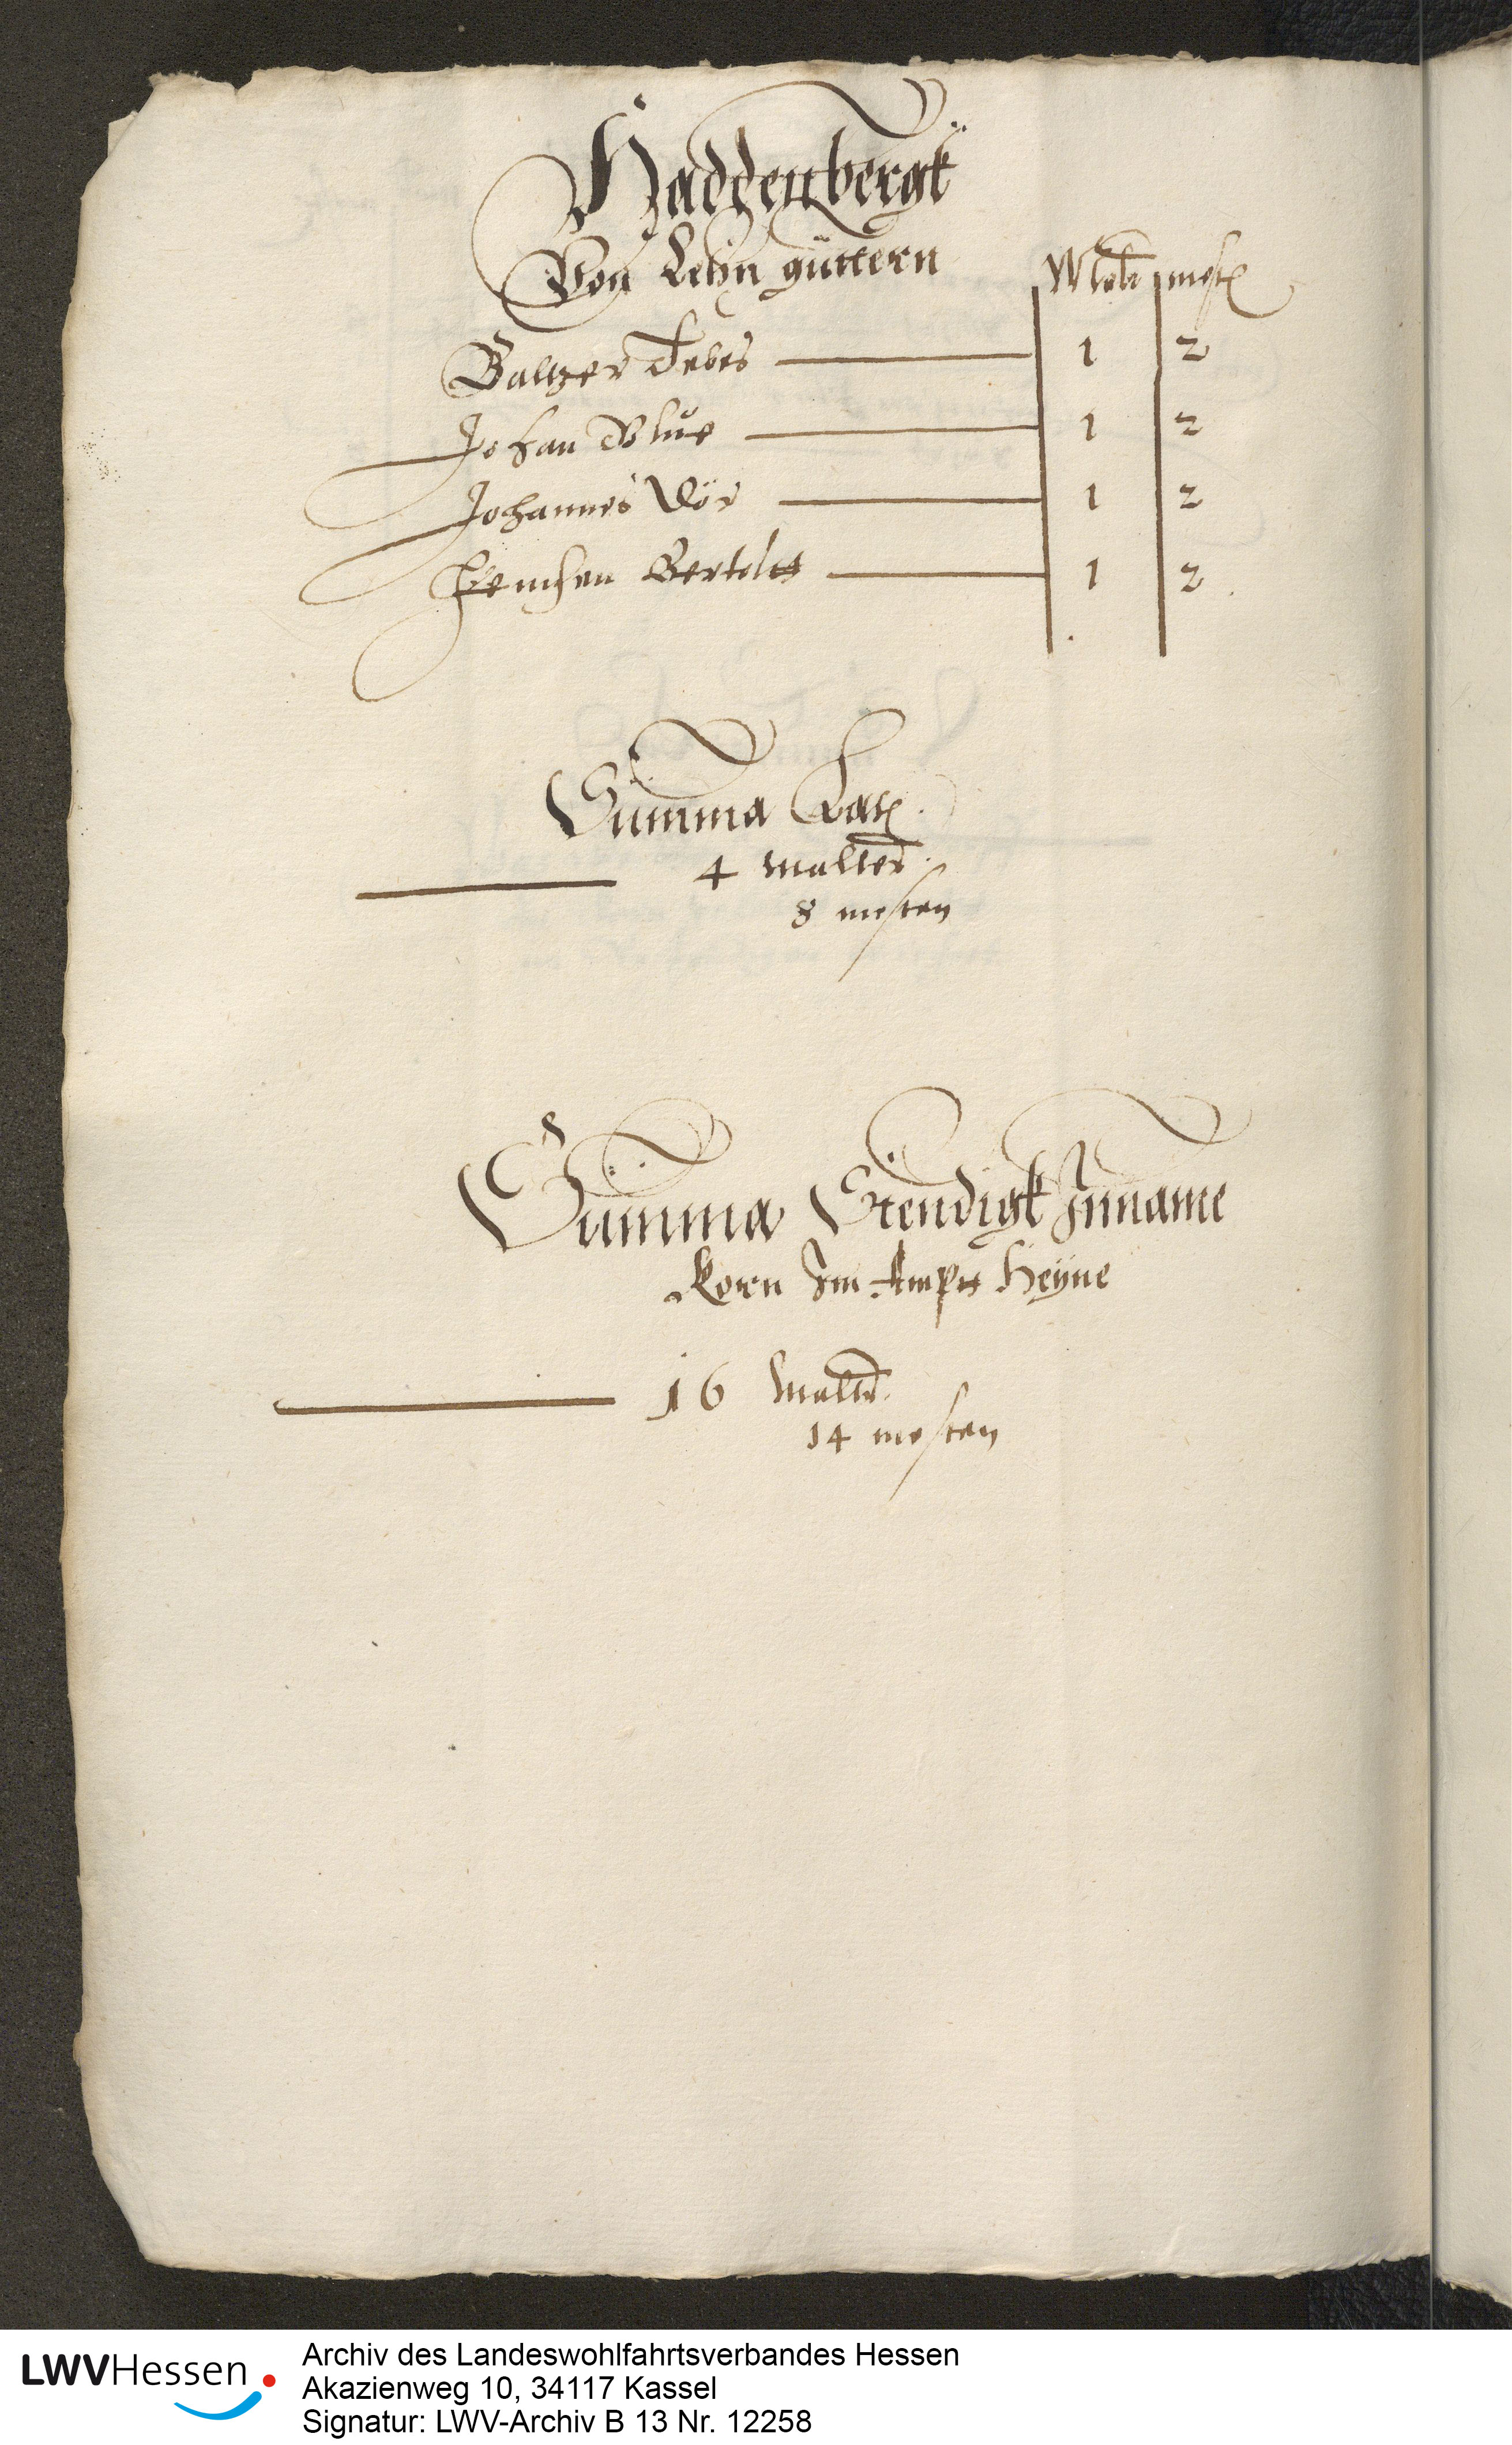 Haddenbergk
Von Lehn güttern
Mltr mest
Baltzer Febes 1 2
Johan 1 2
Johannes Dör 1 2
Henchen Bertoltt 1 2
Summa Lats
4 malter
8 mesten
Summa Stendigk Inname
Korn Im Ampt Heyne
16 Malter
14 mesten
LWVHessen
Archiv des Landeswohlfahrtsverbandes Hessen
Akazienweg 10, 34117 Kassel
Signatur: LWV-Archiv B 13 Nr. 12258